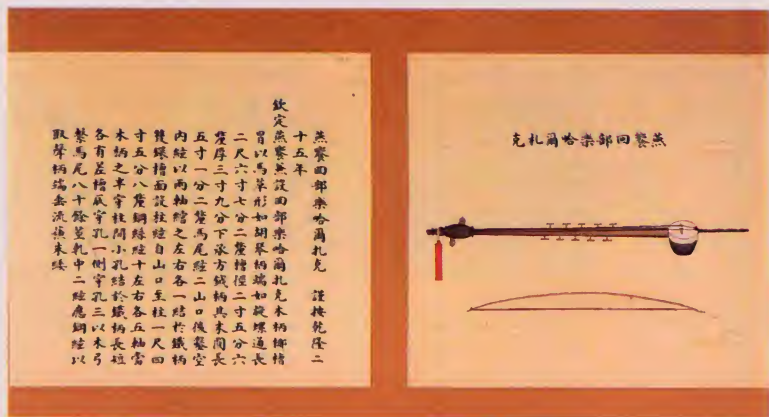 燕饗回部樂哈爾札克
燕饗回部樂哈爾扎克　謹按乾隆二
十五年
欽定燕饗燕設回部樂哈爾扎克木柄椰槽
冒以馬革形如胡琴柄端如旋螺通長
二尺六寸七分二釐槽徑二寸五分六
釐厚三寸九分下承方鐵柄其末圓長
五寸一分二釐馬尾絃二山口後鑿空
內絃以兩軸綰之左右各一結於鐵柄
雙鐶槽面設柱絃自山口至柱一尺四
寸五分八釐鋼絲絃十左右各五軸當
木柄之半穿柱間小孔結於鐵柄長短
各有差槽底穿孔一側穿孔三以木弓
繫馬尾八十餘莖軋中二絃應鋼絃以
取聲柄端垂流蘇朱緌